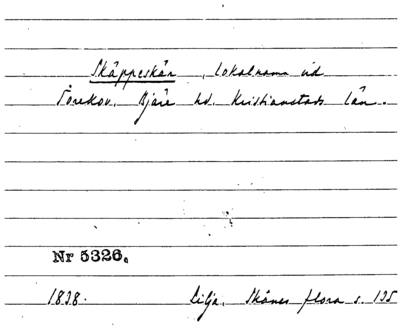 Skäppeskär, lokalnamn vid
Torekov, Bjäre hd. Kristianstads län.
Nr 5326.
1838. Lilja, Skånes flora s. 135